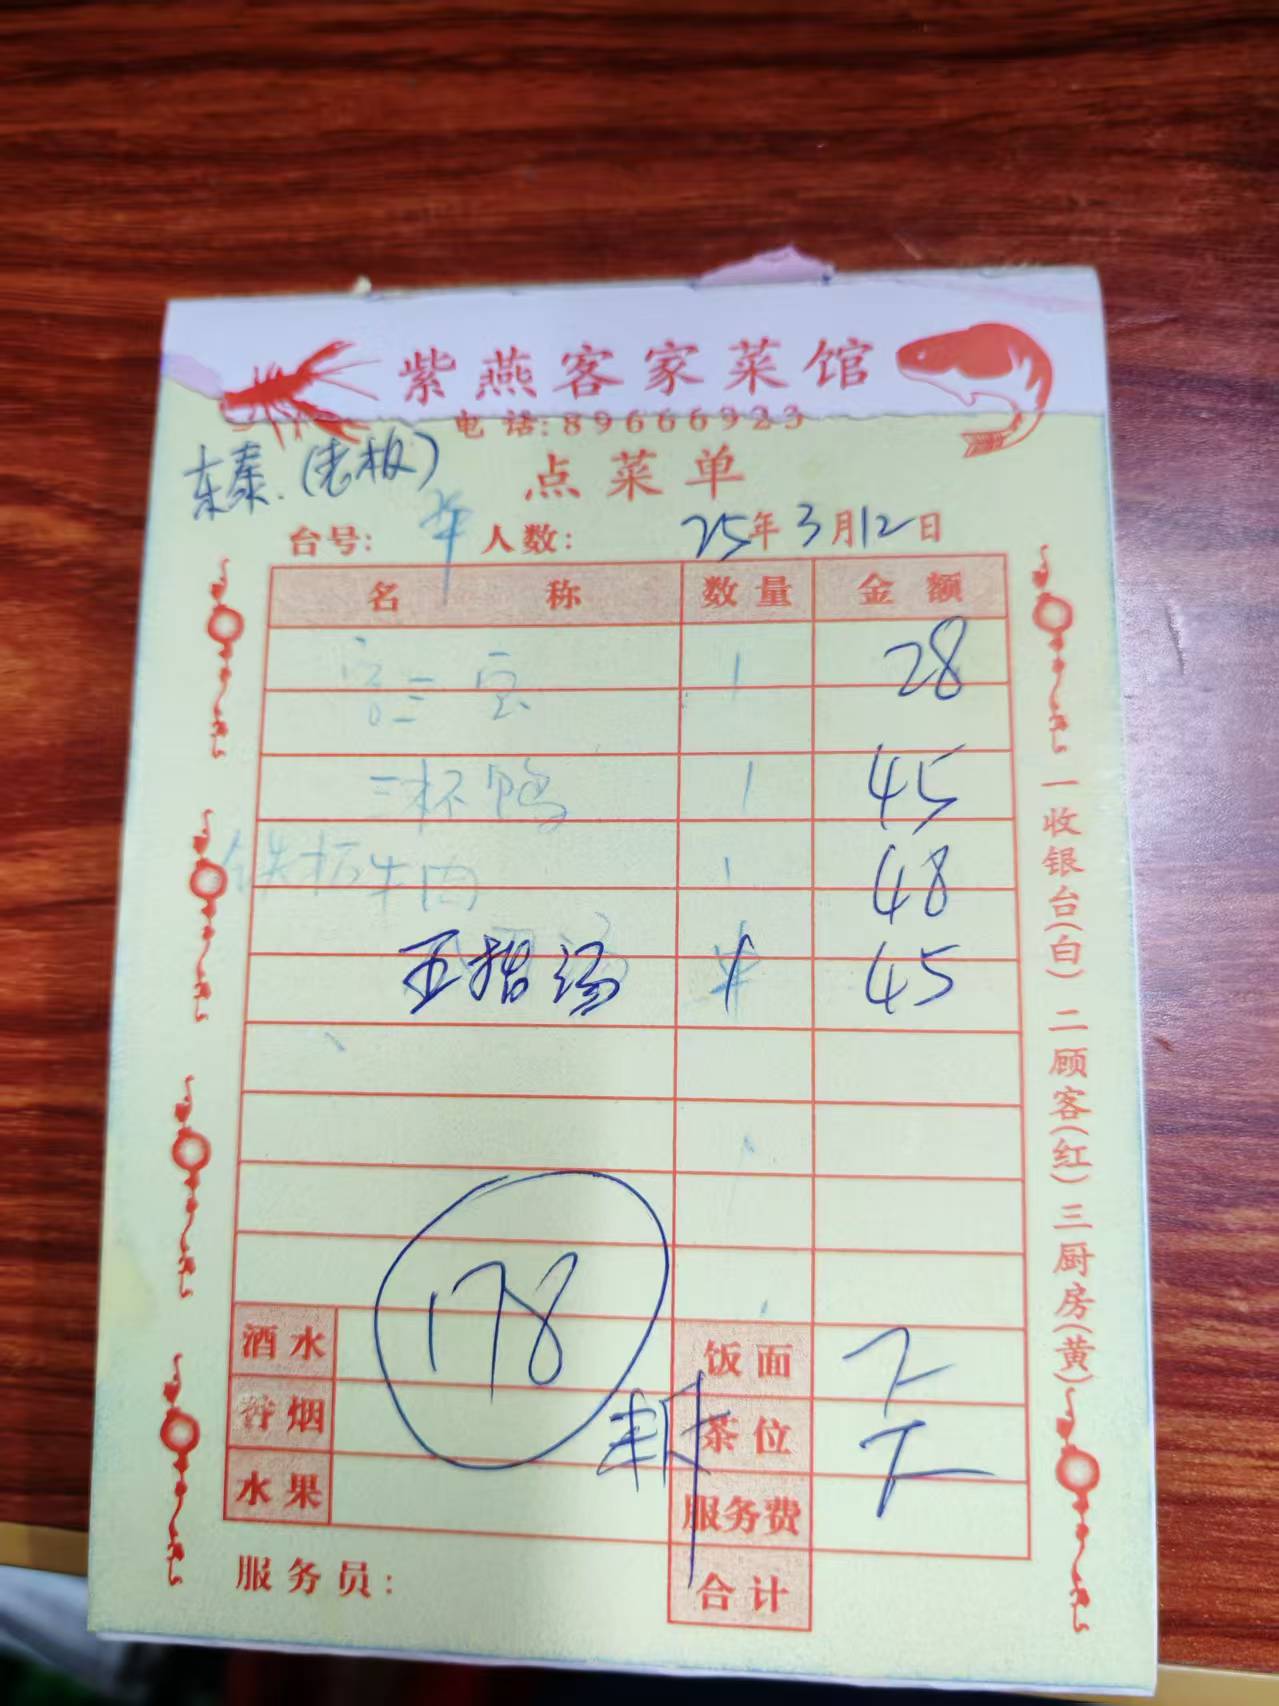 紫燕客家菜馆
电话:89666923
东秦.(老板)
点菜单
台号: 人数: 25年3月12日
名称 数量 金额
客三宝 1 28
三杯鸭 1 45
铁板牛肉 1 48
五指汤 45
178
酒水 饭面
香烟 茶位
水果 服务费
服务员: 合计
一收银台(白)二顾客(红)三厨房(黄)